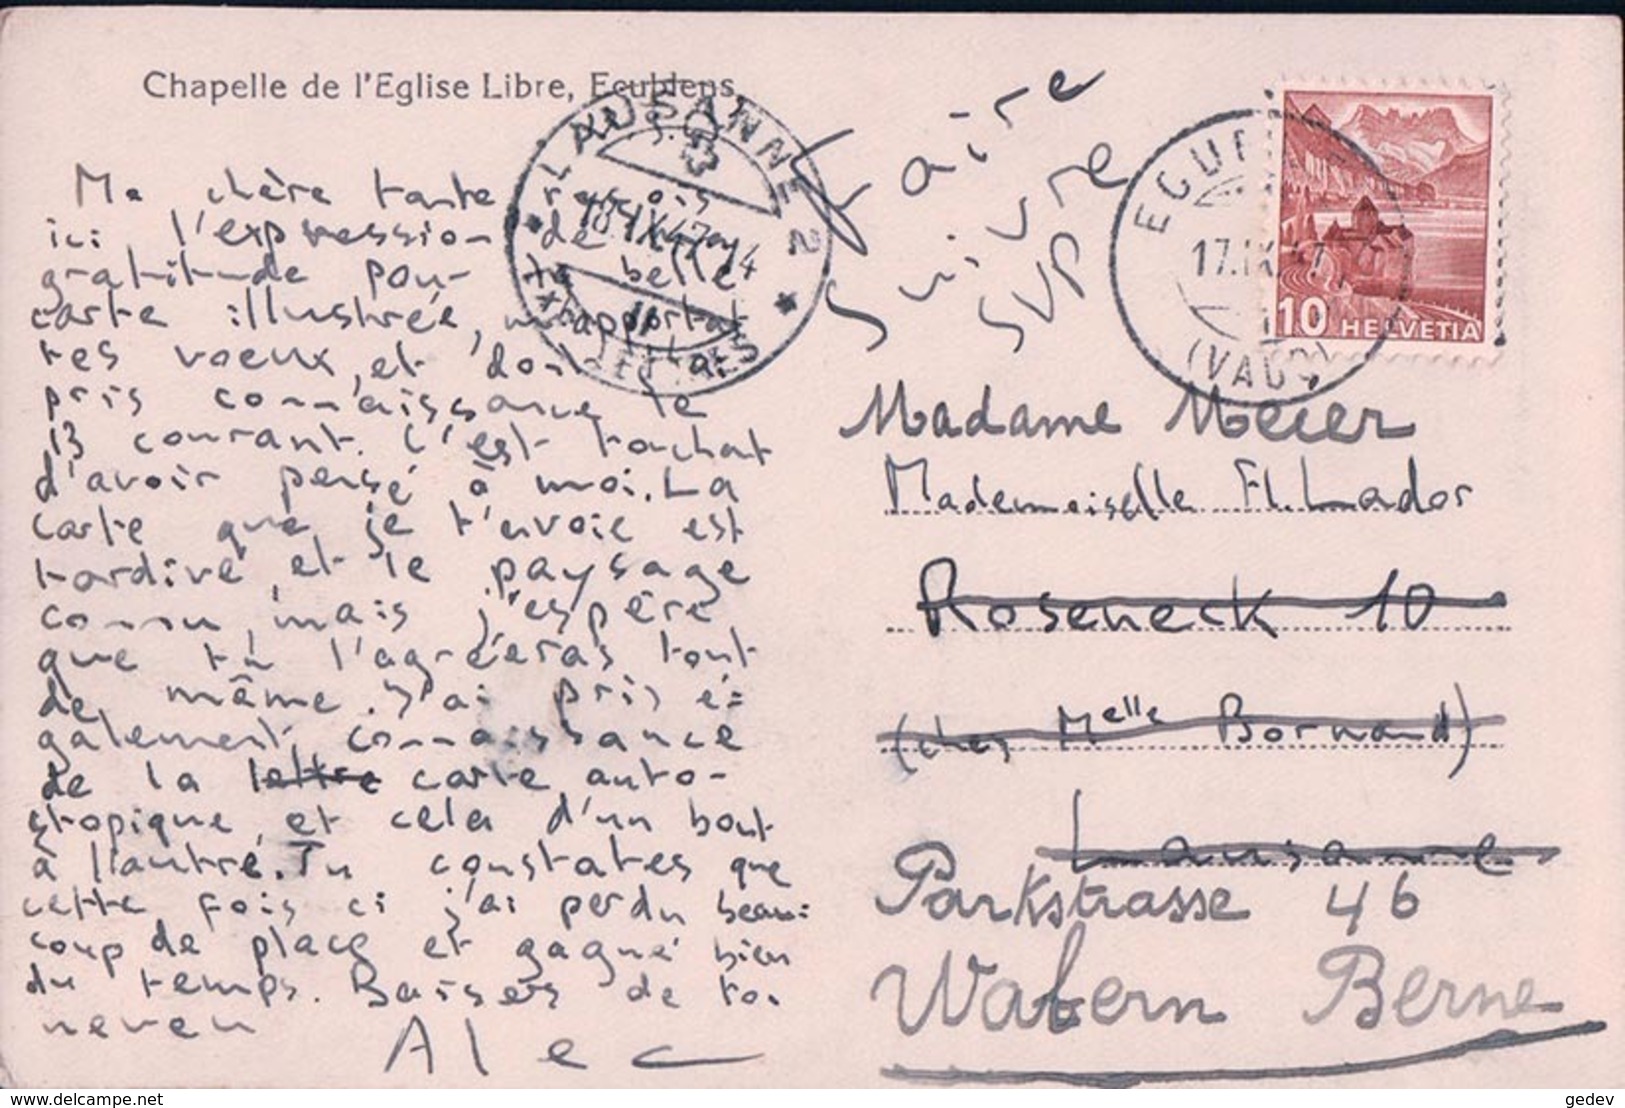 Chapelle de l'Eglise Libre, Ecublens
Ma chère tante reçois
ici l'expression de la
gratitude pour ta belle
carte illustrée, m'apportat
tes voeux, et dont j'ai
pris connaissance le
13 courant. C'est touchat
d'avoir pensé à moi. La
carte que je t'envoie est
tardive, et le paysage
connu, mais j'espère
que tu l'agréeras tout
de même. J'ai pris é=
galement connaissance
de la lettre carte auto-
stopique, et cela d'un bout
à l'autre. Tu constates que
cette fois ci j'ai perdu beau=
coup de place et gagné bien
du temps. Baisers de ton
neveu
Alec
LAUSANNE 2
18.IX.47
LETTRES
Faire
Suivre
SVP
ECUBLENS
17.IX.47
(VAUD)
10 HELVETIA
Madame Meier
Mademoiselle El. Lador
Roseneck 10
(chez Melle Bornand)
Lausanne
Parkstrasse 46
Wabern Berne
https://www.delcampe.net
gedev